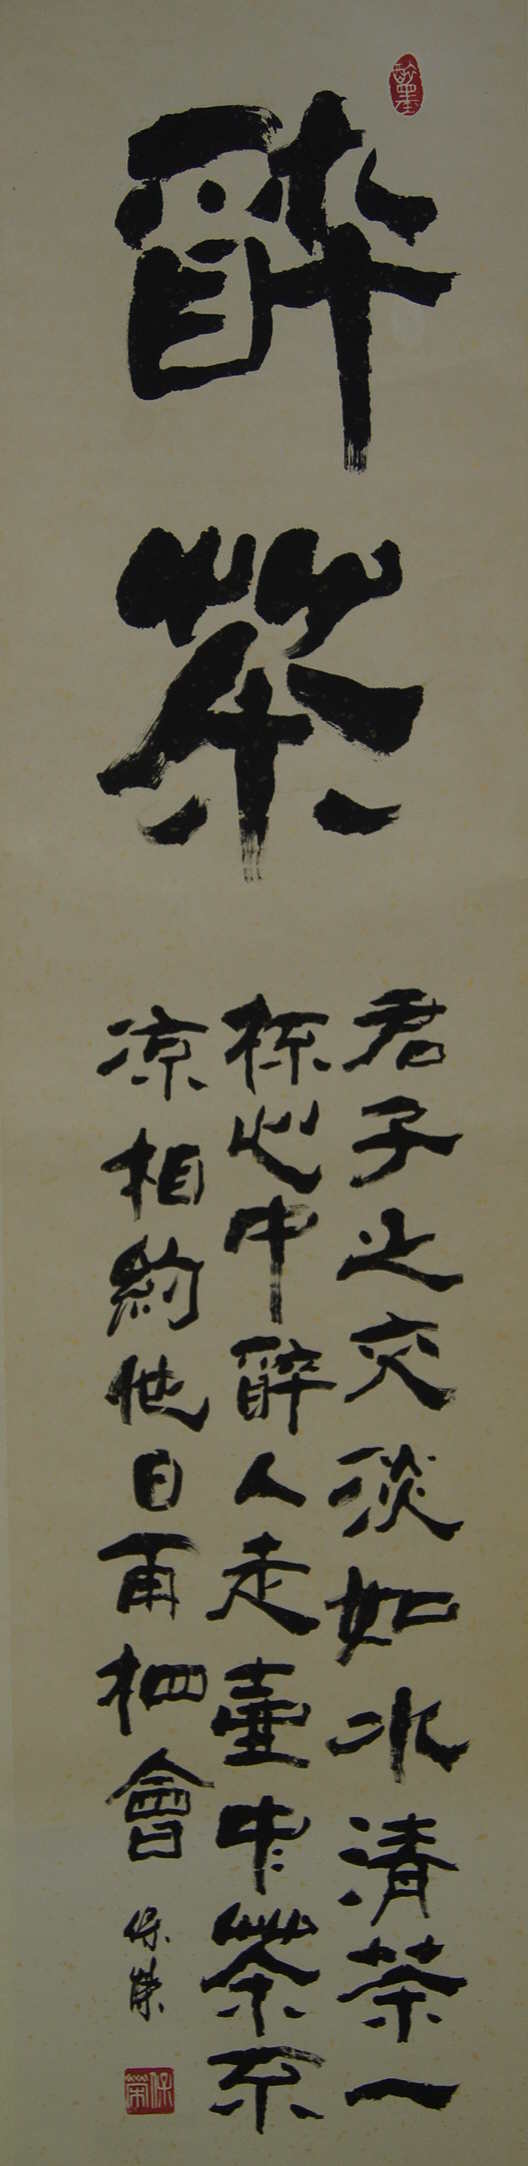 醉茶
君子之交淡如水清茶一
杯心中醉人走壺中茶不
凉相約他日再相會
保榮
保榮